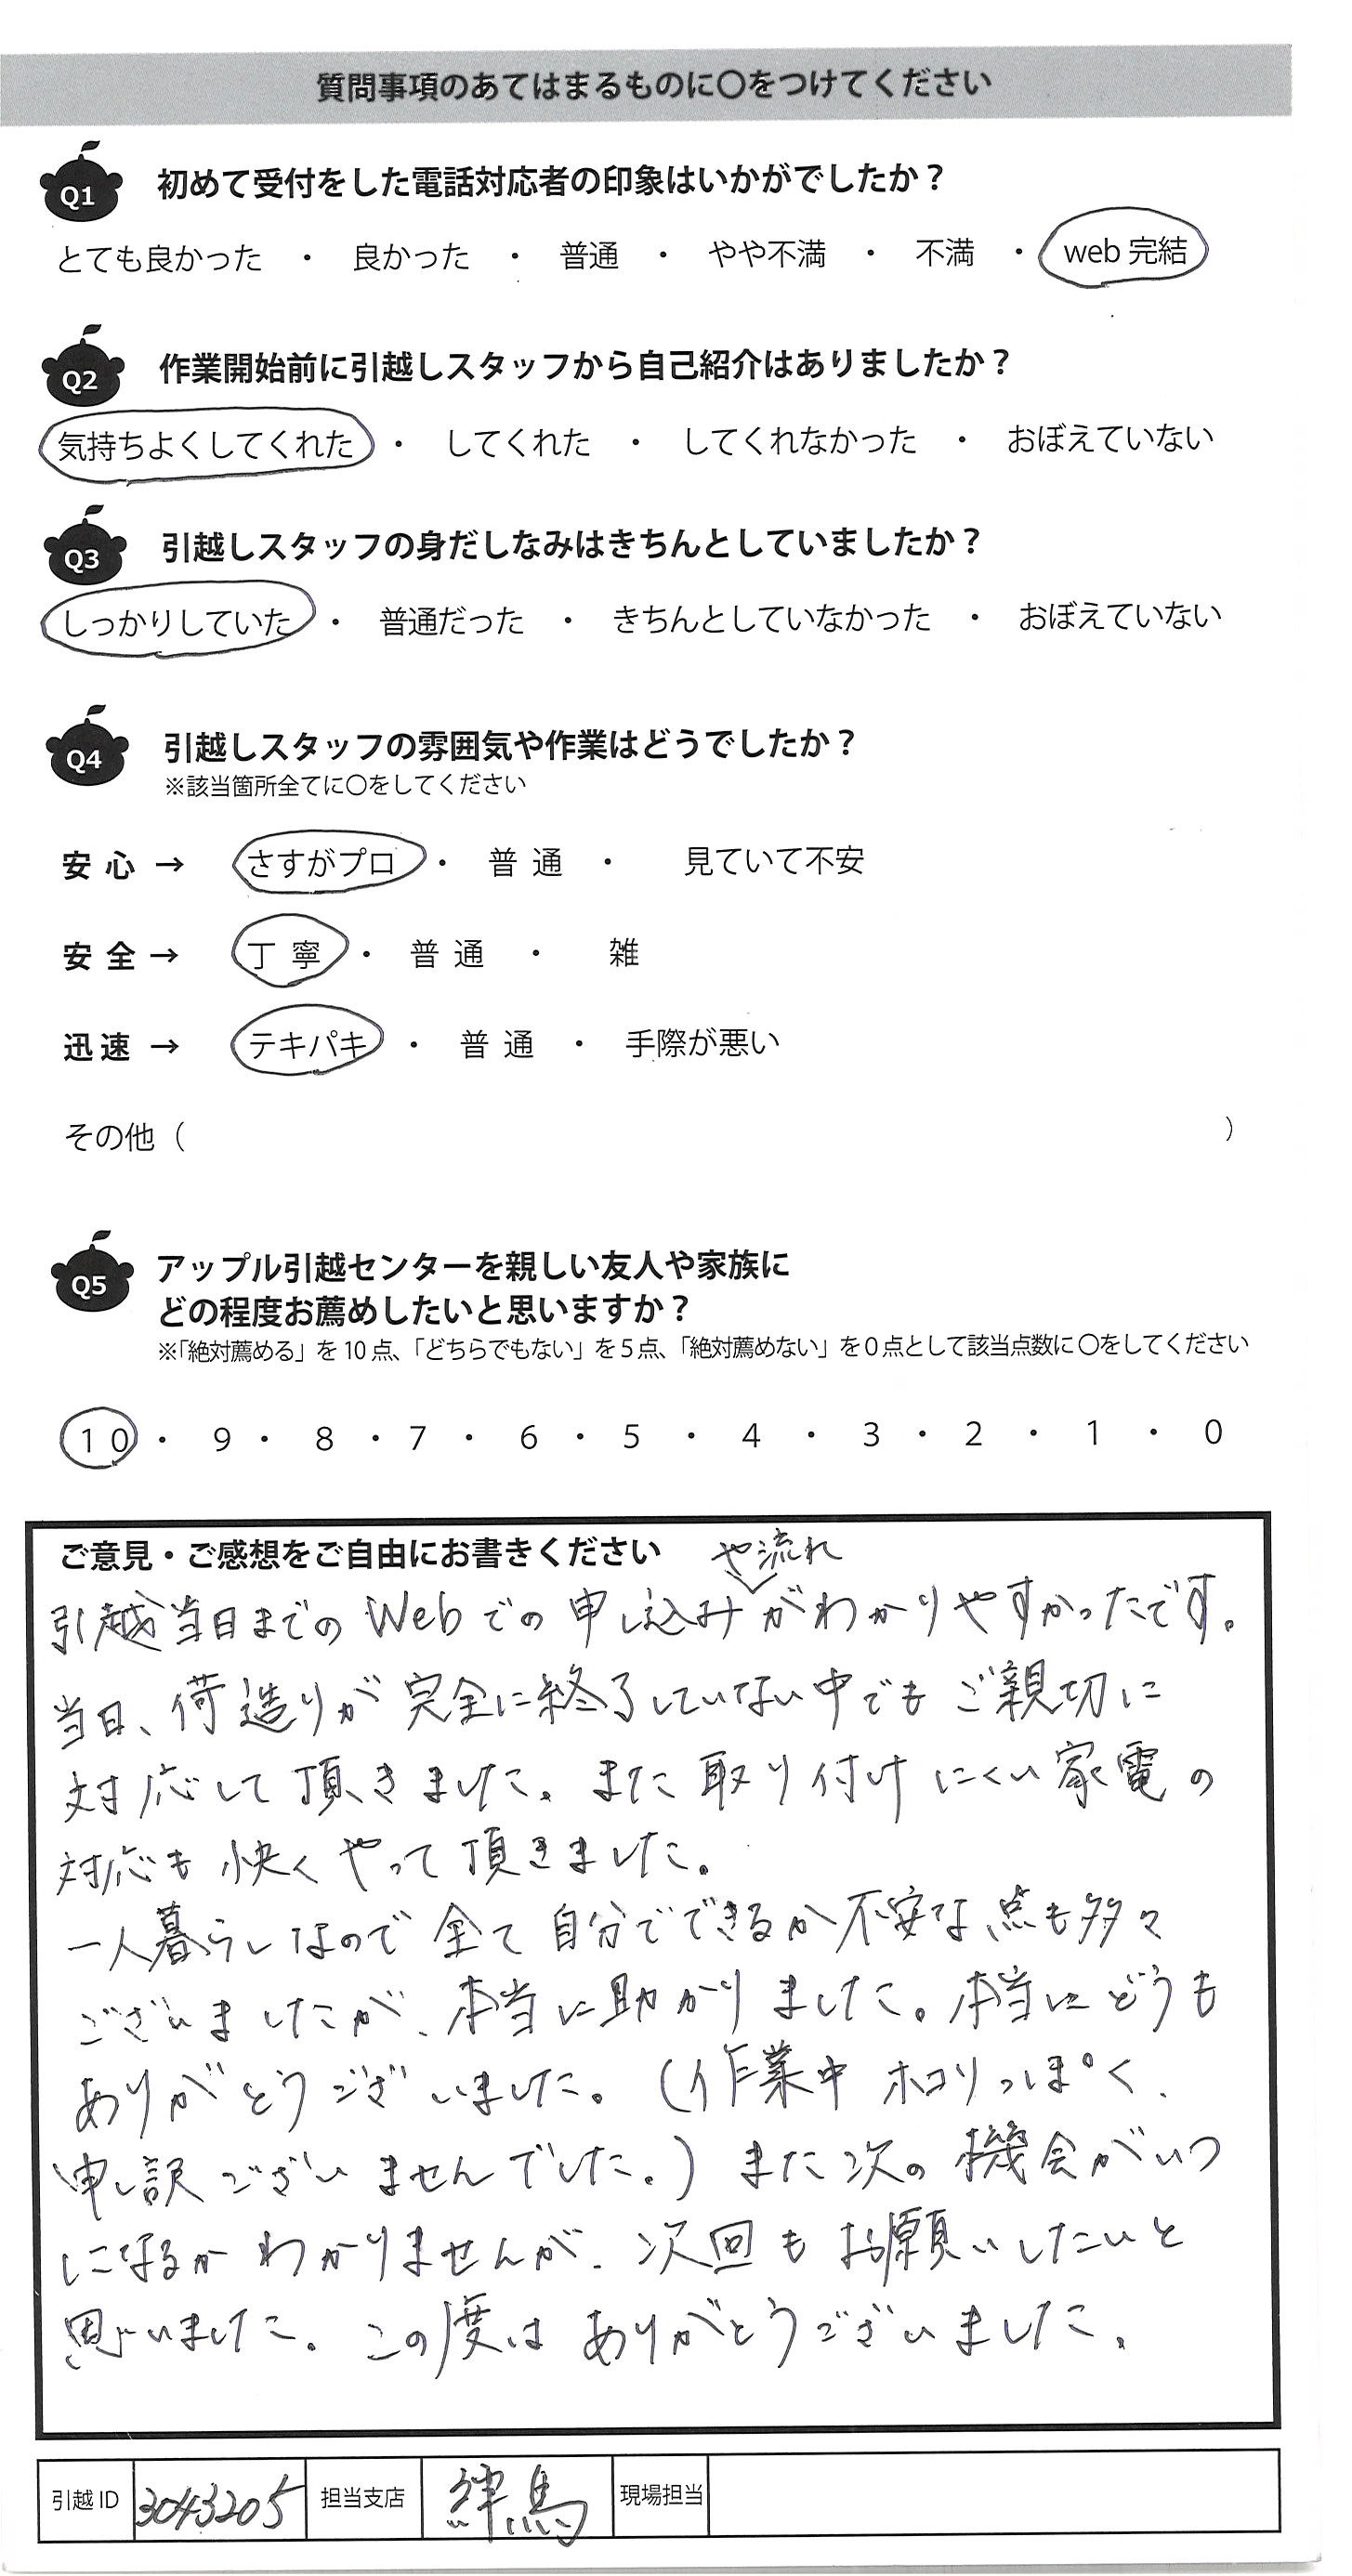 質問事項のあてはまるものに〇をつけてください
Q1 初めて受付をした電話対応者の印象はいかがでしたか？
とても良かった ・ 良かった ・ 普通 ・ やや不満 ・ 不満 ・ web 完結
Q2 作業開始前に引越しスタッフから自己紹介はありましたか？
気持ちよくしてくれた ・ してくれた ・ してくれなかった ・ おぼえていない
Q3 引越しスタッフの身だしなみはきちんとしていましたか？
しっかりしていた ・ 普通だった ・ きちんとしていなかった ・ おぼえていない
Q4 引越しスタッフの雰囲気や作業はどうでしたか？
※該当箇所全てに〇をしてください
安心 → さすがプロ ・ 普通 ・ 見ていて不安
安全 → 丁寧 ・ 普通 ・ 雑
迅速 → テキパキ ・ 普通 ・ 手際が悪い
その他（ ）
Q5 アップル引越センターを親しい友人や家族に
どの程度お薦めしたいと思いますか？
※「絶対薦める」を 10 点、「どちらでもない」を 5 点、「絶対薦めない」を 0 点として該当点数に 〇をしてください
10 ・ 9 ・ 8 ・ 7 ・ 6 ・ 5 ・ 4 ・ 3 ・ 2 ・ 1 ・ 0
ご意見・ご感想をご自由にお書きください
や流れ
引越当日までのWebでの申し込みがわかりやすかったです。
当日、荷造りが完全に終了していない中でもご親切に
対応して頂きました。また取り付けにくい家電の
対応も快くやって頂きました。
一人暮らしなので全て自分でできるか不安な点も多々
ございましたが、本当に助かりました。本当にどうも
ありがとうございました。（作業中ホコリっぽく、
申し訳ございませんでした。）また次の機会がいつ
になるかわかりませんが、次回もお願いしたいと
思いました。この度はありがとうございました。
引越 ID 3043205 担当支店 練馬 現場担当